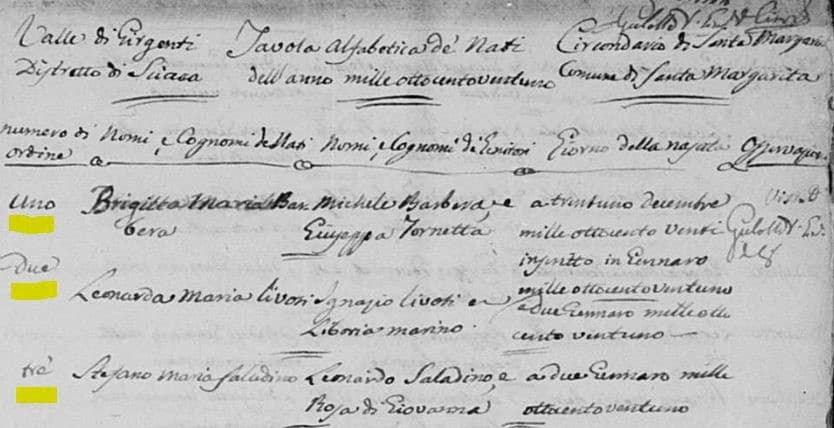 Gulotta
Valle di Girgenti Tavola Alfabetica de' Nati Circondario di Santa Margarita
Distretto di Sciacca dell'anno mille ottocento ventuno Comune di Santa Margarita
numero di Nomi, e Cognomi de Nati Nomi, e Cognomi di Genitori Giorno della nascita Osservazioni
ordine
Uno Brigitta Maria Bar Michele Barbera, e a trentuno decembre
bera Giuseppa Tornetta mille ottocento venti
due inscritto in Gennaro
mille ottocento ventuno
Leonarda Maria Livoti Ignazio Livoti e a due Gennaro mille otto
Liboria Marino cento ventuno
tre Stefano Maria Saladino Leonardo Saladino e a due Gennaro mille
Rosa di Giovanna ottocento ventuno